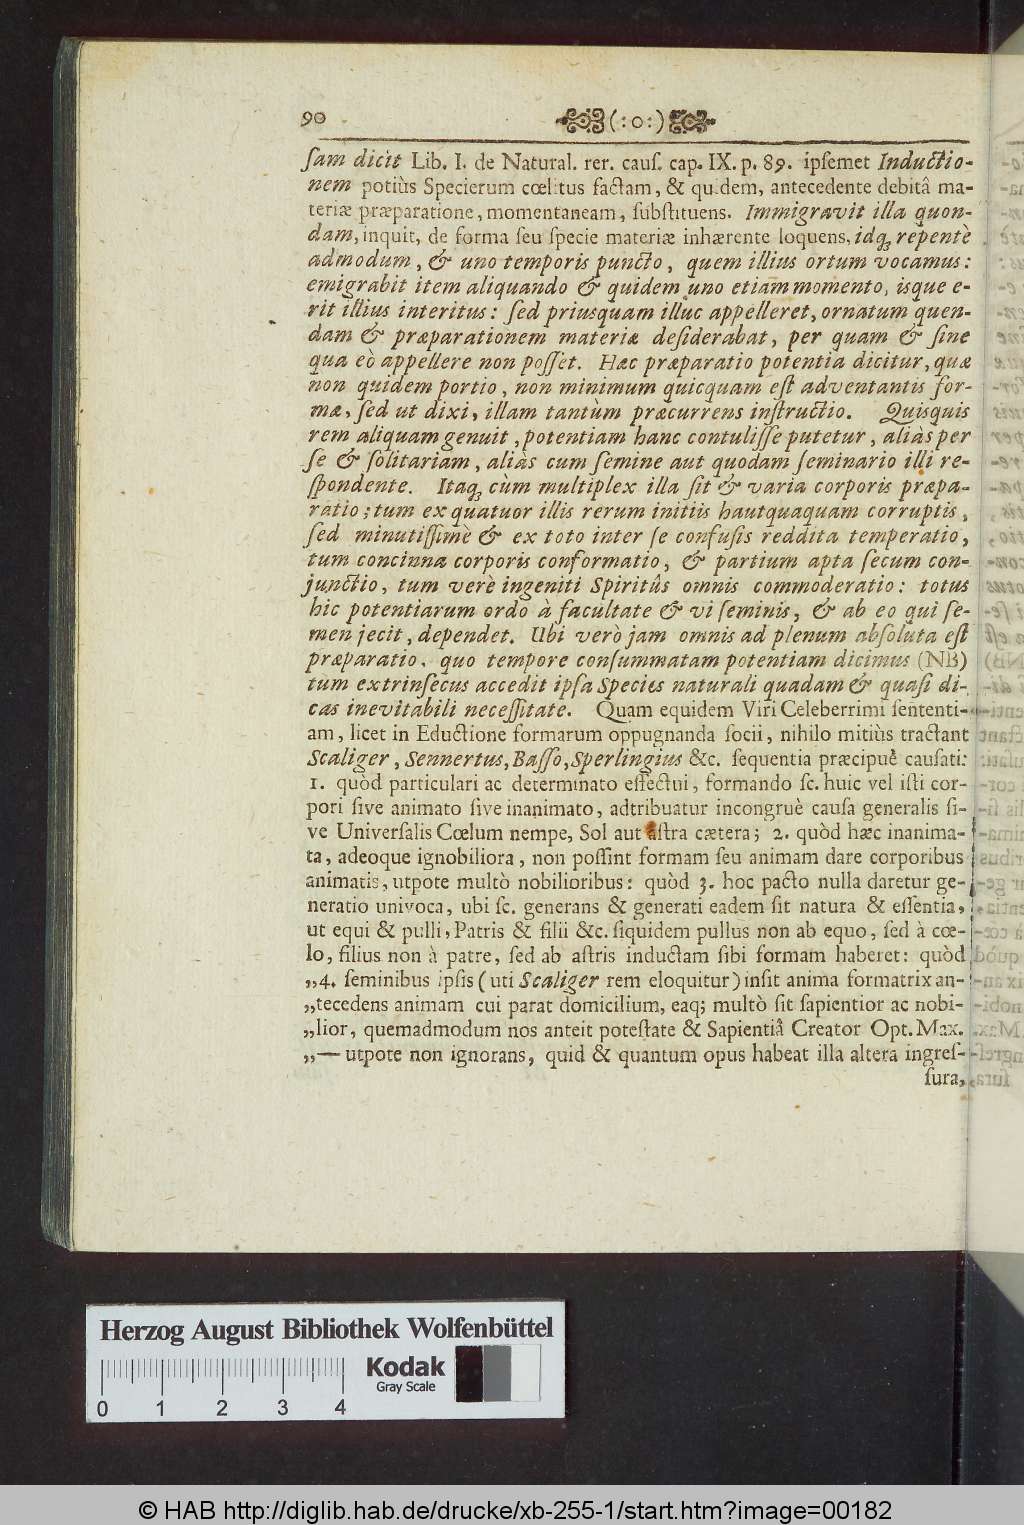 90 (:o:)
ſam dicit Lib. I. de Natural. rer. cauſ. cap. IX. p. 89. ipſemet Inductio-
nem potiùs Specierum cœlitus factam, & quidem, antecedente debitâ ma-
teriæ præparatione, momentaneam, ſubſtituens. Immigravit illa quon-
dam, inquit, de forma ſeu ſpecie materiæ inhærente loquens, idq; repentè
admodum, & uno temporis puncto, quem illius ortum vocamus:
emigrabit item aliquando & quidem uno etiam momento, isque e-
rit illius interitus: ſed priusquam illuc appelleret, ornatum quen-
dam & præparationem materiæ deſiderabat, per quam & ſine
qua eò appellere non poſſet. Hæc præparatio potentia dicitur, quæ
non quidem portio, non minimum quicquam eſt adventantis for-
mæ, ſed ut dixi, illam tantùm præcurrens inſtructio. Quisquis
rem aliquam genuit, potentiam hanc contuliſſe putetur, aliàs per
ſe & ſolitariam, aliàs cum ſemine aut quodam ſeminario illi re-
ſpondente. Itaq; cùm multiplex illa ſit & varia corporis præpa-
ratio; tum ex quatuor illis rerum initiis hautquaquam corruptis,
ſed minutiſſimè & ex toto inter ſe confuſis reddita temperatio,
tum concinna corporis conformatio, & partium apta ſecum con-
junctio, tum verè ingeniti Spiritûs omnis commoderatio: totus
hic potentiarum ordo à facultate & vi ſeminis, & ab eo qui ſe-
men jecit, dependet. Ubi verò jam omnis ad plenum abſoluta eſt
præparatio, quo tempore conſummatam potentiam dicimus (NB)
tum extrinſecus accedit ipſa Species naturali quadam & quaſi di-
cas inevitabili neceſſitate. Quam equidem Viri Celeberrimi ſententi-
am, licet in Eductione formarum oppugnanda ſocii, nihilo mitiùs tractant
Scaliger, Sennertus, Baſſo, Sperlingius &c. ſequentia præcipuè cauſati:
1. quòd particulari ac determinato effectui, formando ſc. huic vel iſti cor-
pori ſive animato ſive inanimato, adtribuatur incongruè cauſa generalis ſi-
ve Univerſalis Cœlum nempe, Sol aut aſtra cætera; 2. quòd hæc inanima-
ta, adeoque ignobiliora, non poſſint formam ſeu animam dare corporibus
animatis, utpote multò nobilioribus: quòd 3. hoc pacto nulla daretur ge-
neratio univoca, ubi ſc. generans & generati eadem ſit natura & eſſentia,
ut equi & pulli, Patris & filii &c. ſiquidem pullus non ab equo, ſed à cœ-
lo, filius non à patre, ſed ab aſtris inductam ſibi formam haberet: quòd
„4. ſeminibus ipſis (uti Scaliger rem eloquitur) inſit anima formatrix an-
„tecedens animam cui parat domicilium, eaq; multò ſit ſapientior ac nobi-
„lior, quemadmodum nos anteit poteſtate & Sapientiâ Creator Opt. Max.
„— utpote non ignorans, quid & quantum opus habeat illa altera ingreſ-
ſura,
Herzog August Bibliothek Wolfenbüttel
Kodak
Gray Scale
0 1 2 3 4
© HAB http://diglib.hab.de/drucke/xb-255-1/start.htm?image=00182